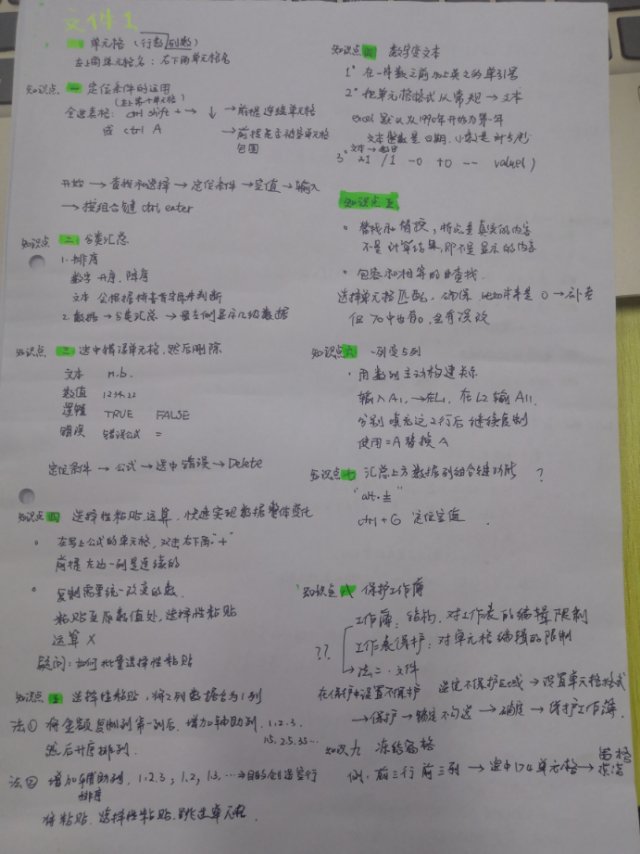 文件1
一 单元格（行数 列数）
左上角单元格名：右下角单元格名
知识点 一 定位条件的运用
（在上第一个单元格）
全选表格：ctrl shift + → ↓ → 前提连续单元格
或 ctrl A → 前提是否相邻单元格
包围
开始 → 查找和选择 → 定位条件 → 空值 → 输入
→ 按组合键 ctrl enter
知识点 二 分类汇总
1. 排序
数字 升序、降序
文本 公根据拼音首字母来判断
2. 数据 → 分类汇总 → 最左侧显示几级数据
知识点 三 选中错误单元格，然后删除
文本 n.b.
数值 1234.22
逻辑 TRUE FALSE
错误 错误公式 =
定位条件 → 公式 → 选中错误 → Delete
知识点 四 选择性粘贴运算，快速实现数据整体变化
• 在写上公式的单元格，双击右下角“+”
前提左边一列是连续的
• 复制需要统一改变的数，
粘贴至原数值处，选择性粘贴
运算 X
疑问：如何批量选择性粘贴
知识点 五 选择性粘贴，将2列数据合为1列
法① 将金额复制到第一列后，增加辅助列，1.2.3.
1.5.2.5.3.5…
然后升序排列.
法② 增加辅助列，1.2.3；1.2，1.3. …→
排序
将粘贴，选择性粘贴，跳过单元格.
知识点 数字变文本
1° 在一件数之前加上英文的单引号
2° 把单元格格式从常规 → 文本
excel 默认从1990年开始为第一年
文本整数是日期，小数是时分秒
文本 → 数字
3° *1 /1 -0 +0 -- value( )
知识点五
• 替找和替换，特点是真实的内容
不是计算结果，即不是显示的内容
• 包容和相等的查找.
选择单元格匹配，确保 0 → 补考
但70中也有0，会有误改
知识点六 一列变多列
• 用数列主动构建关系
输入A1，→ 在L1，在L2输A11.
分别填充这2行后继续复制
使用 =A 替换 A
知识点七 汇总上方数据列组合键功能 ？
“alt + 士”
ctrl + G 定位空值.
知识点八 保护工作簿
工作簿：结构，对工作表的编辑限制
?? 工作表保护：对单元格编辑的限制
→ 法二：文件
在保护中设置不保护 选定不保护区域 → 设置单元格格式
→ 保护 → 锁定不勾选 → 确定 → 保护工作簿.
知识点九 冻结窗格
例. 前三行前三列 → 选中D4单元格 → 窗格
冻结